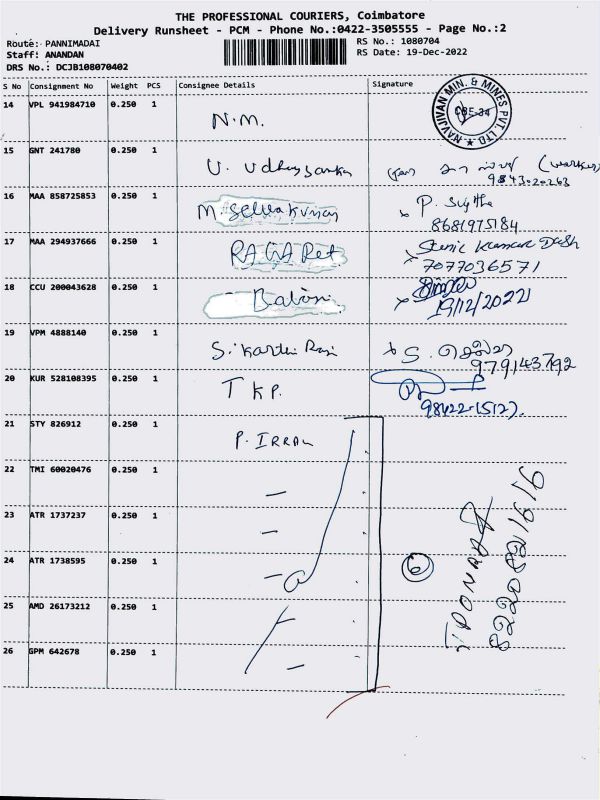 THE PROFESSIONAL COURIERS, Coimbatore
Delivery Runsheet - PCM - Phone No.:0422-3505555 - Page No.:2
Route: PANNIMADAI
RS No.: 1080704
Staff: ANANDAN
RS Date: 19-Dec-2022
DRS No.: DCJB108070402
S No Consignment No Weight PCS Consignee Details Signature
14 VPL 941984710 0.250 1 N.M.
NAVJIVAN MIN. & MINES PVT. LTD.
CBE-34
15 GNT 241780 0.250 1 U. (worker)
16 MAA 858725853 0.250 1 M. Selvakumar P.
8681975184
17 MAA 294937666 0.250 1 Kumar Dash
7077036571
18 CCU 200043628 0.250 1
19/12/2022
19 VPM 4888140 0.250 1 S. S.
20 KUR 528108395 0.250 1 T K P.
21 STY 826912 0.250 1 P.
22 TMI 60020476 0.250 1 —
23 ATR 1737237 0.250 1 —
24 ATR 1738595 0.250 1 —
6
25 AMD 26173212 0.250 1 —
26 GPM 642678 0.250 1 —
8220821616